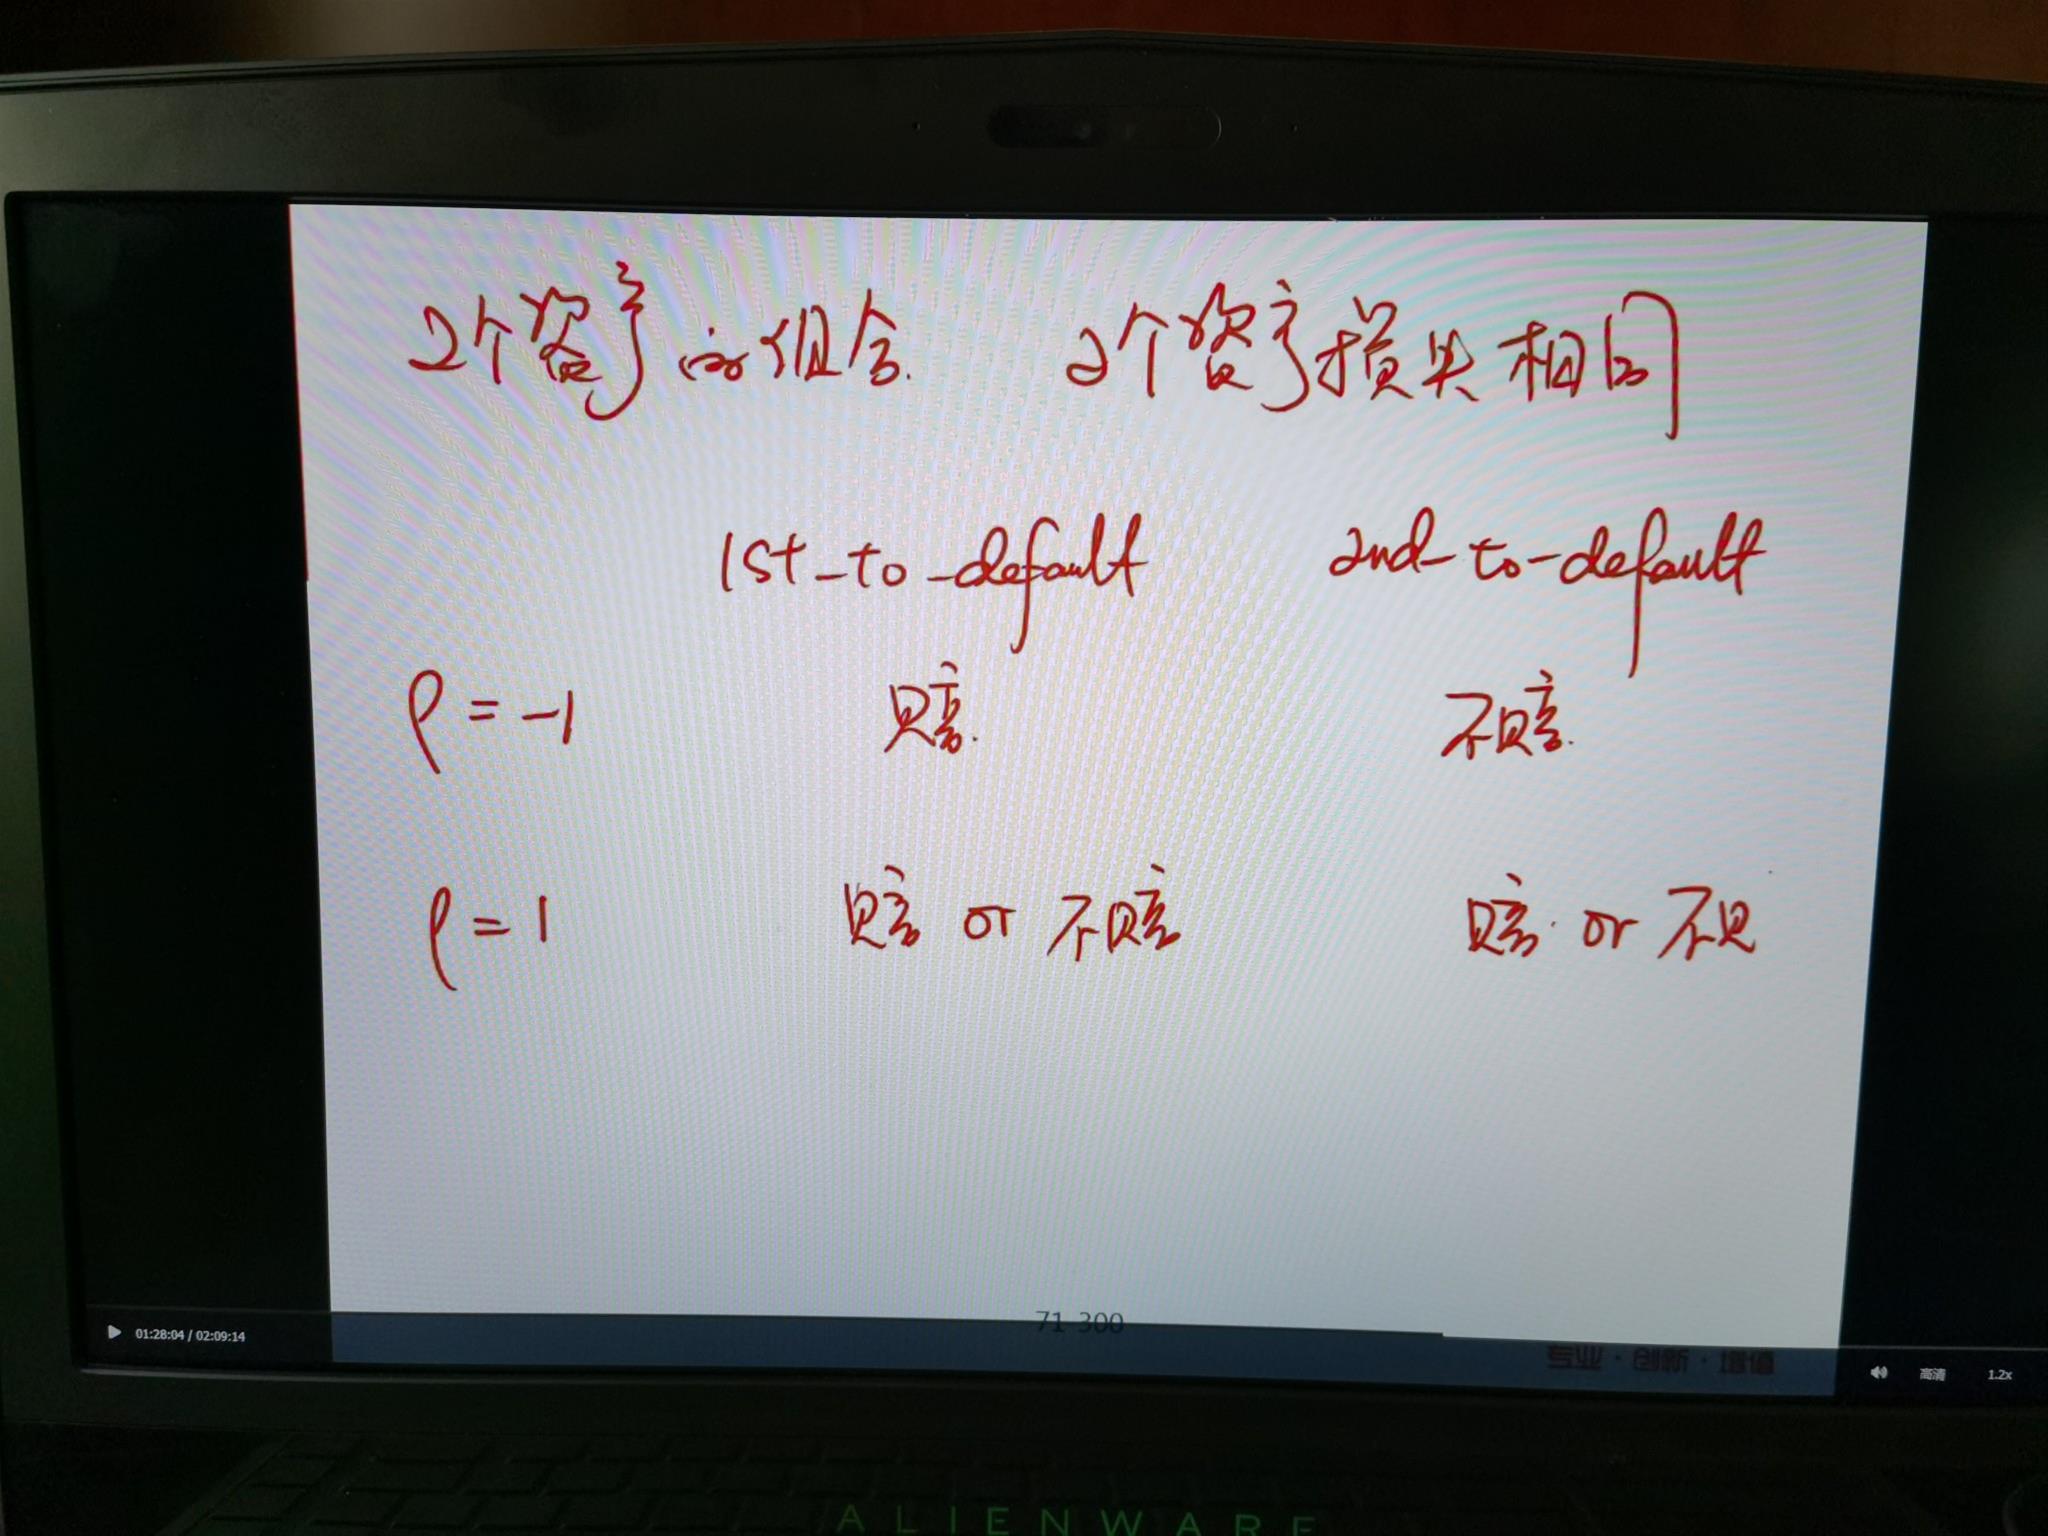 2个资产的组合. 2个资产损失相同
1st-to-default 2nd-to-default
ρ = -1 赔. 不赔.
ρ = 1 赔 or 不赔 赔. or 不贝
71-300
专业·创新·增值
01:28:04 / 02:09:14 高清 1.2x
ALIENWARE